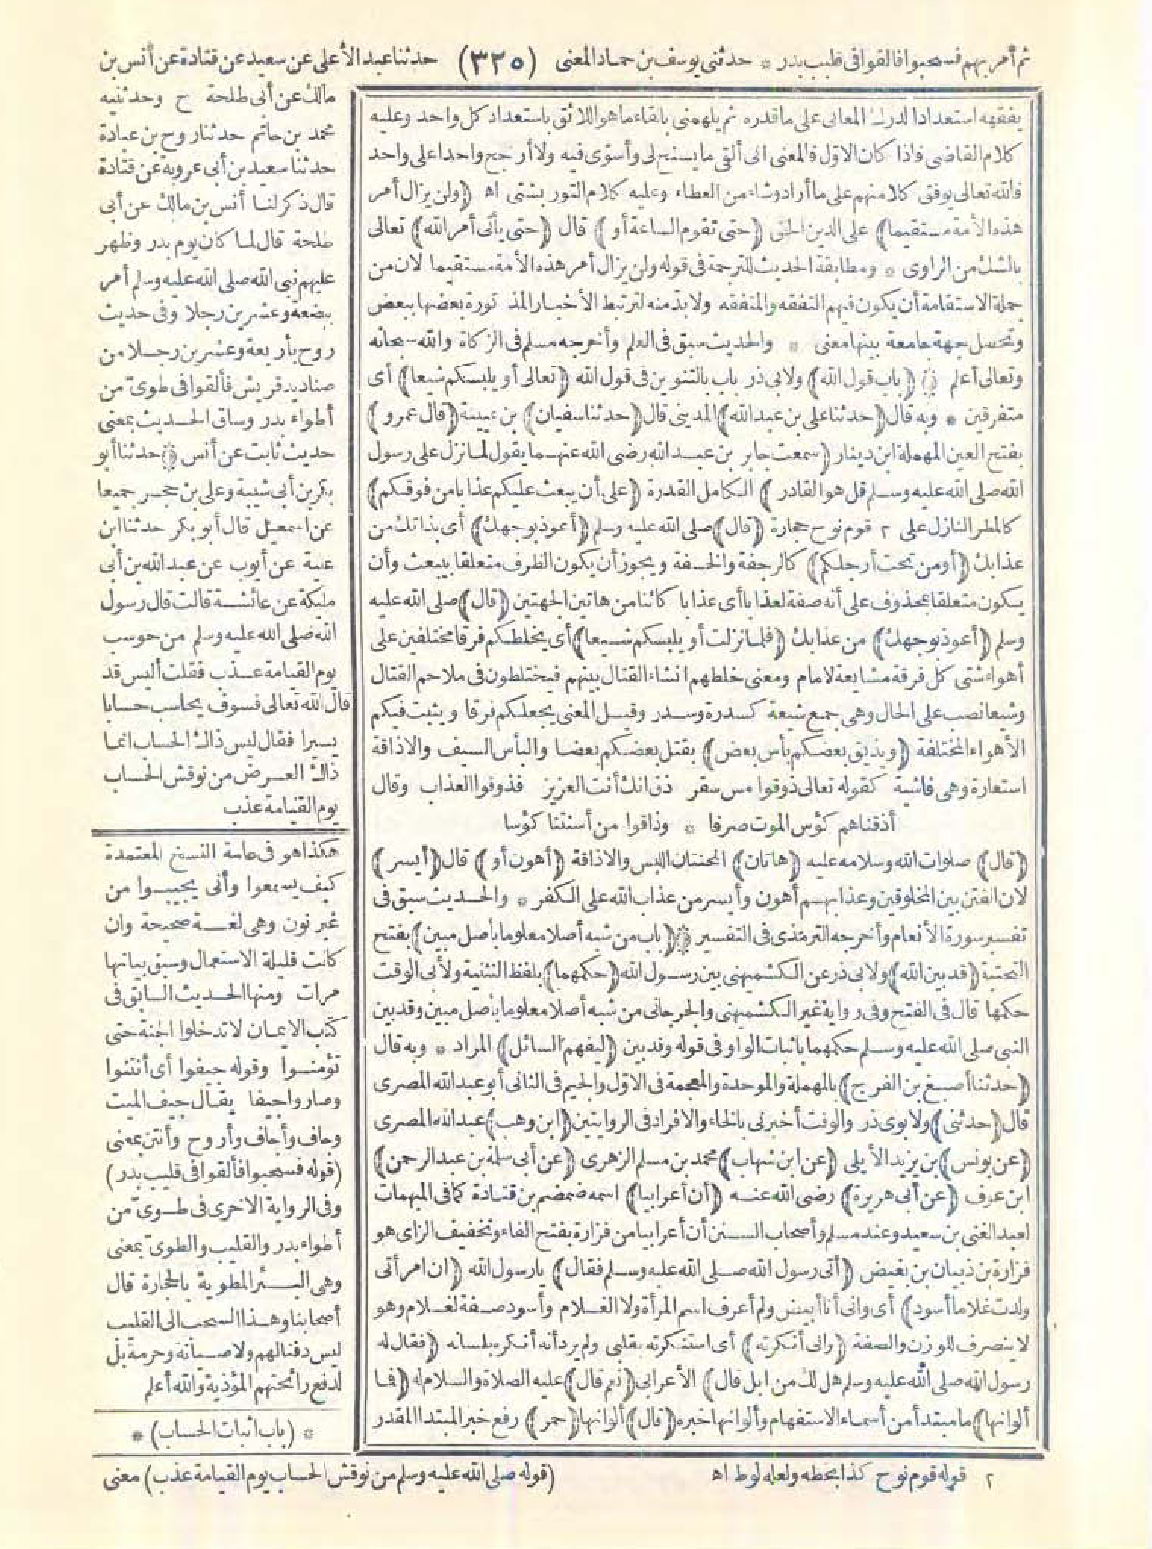 ثم أمر بهم فسحبوا فألقوا فى قليب بدر * حدثنى يوسف بن حماد المعنى (٣٢٥) حدثنا عبد الأعلى عن سعيد عن قتادة عن أنس بن
مالك عن أبى طلحة ح وحدثنيه
محمد بن حاتم حدثنا روح بن عبادة
حدثنا سعيد بن أبى عروبة عن قتادة
قال ذكر لنا أنس بن مالك عن أبى
طلحة قال لما كان يوم بدر وظهر
عليهم نبى الله صلى الله عليه وسلم أمر
ببضعة وعشرين رجلا وفى حديث
روح بأربعة وعشرين رجلا من
صناديد قريش فألقوا فى طوىّ من
أطواء بدر وساق الحديث بمعنى
حديث ثابت عن أنس ۞ حدثنا أبو
بكر بن أبى شيبة وعلى بن حجر جميعا
عن اسمعيل قال أبو بكر حدثنا ابن
علية عن أيوب عن عبد الله بن أبى
مليكة عن عائشة قالت قال رسول
الله صلى الله عليه وسلم من حوسب
يوم القيامة عذب فقلت أليس قد
قال الله تعالى فسوف يحاسب حسابا
يسيرا فقال ليس ذاك الحساب انما
ذاك العرض من نوقش الحساب
يوم القيامة عذب
هكذا هو فى عامة النسخ المعتمدة
كيف يسمعوا وأنى يجيبوا من
غير نون وهى لغة صحيحة وان
كانت قليلة الاستعمال وسبق بيانها
مرات ومنها الحديث السابق فى
كتاب الايمان لا تدخلوا الجنة حتى
تؤمنوا وقوله جيفوا أى أنتنوا
وصاروا جيفا يقال جيف الميت
وجاف وأجاف وأروح وأنتن بمعنى
(قوله فسحبوا فألقوا فى قليب بدر)
وفى الرواية الاخرى فى طوىّ من
أطواء بدر والقليب والطوى بمعنى
وهى البئر المطوية بالحجارة قال
أصحابنا وهذا السحب الى القليب
ليس دفنا لهم ولا صيانة وحرمة بل
لدفع رائحتهم المؤذية والله أعلم
* (باب اثبات الحساب) *
(قوله صلى الله عليه وسلم من نوقش الحساب يوم القيامة عذب) معنى
يفقهه استعدادا لدرك المعانى على ما قدره ثم يلهمنى بالقاء ما هو اللائق باستعداد كل واحد وعليه
كلام القاضى فاذا كان الاوّل فالمعنى انى ألقى ما يسنح لى وأسوّى فيه ولا أرجح واحدا على واحد
فالله تعالى يوفق كلا منهم على ما أراد وشاء من العطاء وعليه كلام التوربشتى اه (ولن يزال أمر
هذه الأمة مستقيما) على الدين الحق (حتى تقوم الساعة أو) قال (حتى يأتى أمر الله) تعالى
بالشك من الراوى * ومطابقة الحديث للترجمة فى قوله ولن يزال أمر هذه الأمة مستقيما لان من
جملة الاستقامة أن يكون فيهم التفقه والمتفقه ولا بدّ منه لترتبط الأخبار المذكورة بعضها ببعض
وتحصل جهة جامعة بينها معنى * والحديث سبق فى العلم وأخرجه مسلم فى الزكاة والله سبحانه
وتعالى أعلم ۞ (باب قول الله) ولابى ذر باب بالتنوين فى قول الله (تعالى أو يلبسكم شيعا) أى
متفرقين * وبه قال (حدثنا على بن عبد الله) المدينى قال (حدثنا سفيان) بن عيينة (قال عمرو)
بفتح العين المهملة ابن دينار (سمعت جابر بن عبد الله رضى الله عنهما يقول لما نزل على رسول
الله صلى الله عليه وسلم قل هو القادر) الكامل القدرة (على أن يبعث عليكم عذابا من فوقكم)
كالمطر النازل على ٢ قوم نوح حجارة (قال) صلى الله عليه وسلم (أعوذ بوجهك) أى بذاتك من
عذابك (أو من تحت أرجلكم) كالرجفة والخسفة ويجوز أن يكون الظرف متعلقا بيبعث وأن
يكون متعلقا بمحذوف على أنه صفة لعذابا أى عذابا كائنا من هاتين الجهتين (قال) صلى الله عليه
وسلم (أعوذ بوجهك) من عذابك (فلما نزلت أو يلبسكم شيعا) أى يخلطكم فرقا مختلفين على
أهواء شتى كل فرقة مشايعة لامام ومعنى خلطهم انشاء القتال بينهم فيختلطون فى ملاحم القتال
وشيعا نصب على الحال وهى جمع شيعة كسدرة وسدر وقيل المعنى يجعلكم فرقا ويثبت فيكم
الأهواء المختلفة (ويذيق بعضكم بأس بعض) بقتل بعضكم بعضا والبأس السيف والاذاقة
استعارة وهى فاشية كقوله تعالى ذوقوا مس سقر ذق انك أنت العزيز فذوقوا العذاب وقال
أذقناهم كؤس الموت صرفا * وذاقوا من أسنتنا كؤسا
(قال) صلوات الله وسلامه عليه (هاتان) المحنتان اللبس والاذاقة (أهون أو) قال (أيسر)
لان الفتن بين المخلوقين وعذابهم أهون وأيسر من عذاب الله على الكفر * والحديث سبق فى
تفسير سورة الأنعام وأخرجه الترمذى فى التفسير ۞ (باب من شبه أصلا معلوما بأصل مبين) بفتح
التحتية (قد بين الله) ولابى ذر عن الكشميهنى بين رسول الله (حكمهما) بلفظ التثنية ولأبى الوقت
حكمها قال فى الفتح وفى رواية غير الكشميهنى والجرجانى من شبه أصلا معلوما بأصل مبين وقد بين
النبى صلى الله عليه وسلم حكمهما باثبات الواو فى قوله وقد بين (ليفهم السائل) المراد * وبه قال
(حدثنا أصبغ بن الفرج) بالمهملة والموحدة والمعجمة فى الاوّل والجيم فى الثانى أبو عبد الله المصرى
قال (حدثنى) ولابوى ذر والوقت أخبرنى بالخاء والافراد فى الروايتين (ابن وهب) عبد الله المصرى
(عن يونس) بن يزيد الأيلى (عن ابن شهاب) محمد بن مسلم الزهرى (عن أبى سلمة بن عبد الرحمن)
ابن عوف (عن أبى هريرة) رضى الله عنه (أن أعرابيا) اسمه ضمضم بن قتادة كما فى المبهمات
لعبد الغنى بن سعيد وعند مسلم وأصحاب السنن أن أعرابيا من فزارة بفتح الفاء وتخفيف الزاى هو
فزارة بن ذبيان بن بغيض (أتى رسول الله صلى الله عليه وسلم فقال) يا رسول الله (ان امرأتى
ولدت غلاما أسود) أى وانى أنا أبيض ولم أعرف اسم المرأة ولا الغلام وأسود صفة لغلام وهو
لا ينصرف للوزن والصفة (وانى أنكرته) أى استنكرته بقلبى ولم يرد أنه أنكره بلسانه (فقال له
رسول الله صلى الله عليه وسلم هل لك من ابل قال) الأعرابى (نعم قال) عليه الصلاة والسلام له (فما
ألوانها) ما مبتدأ من أسماء الاستفهام وألوانها خبره (قال) ألوانها (حمر) رفع خبر المبتدا المقدر
٢ قوله قوم نوح كذا بخطه ولعله لوط اه